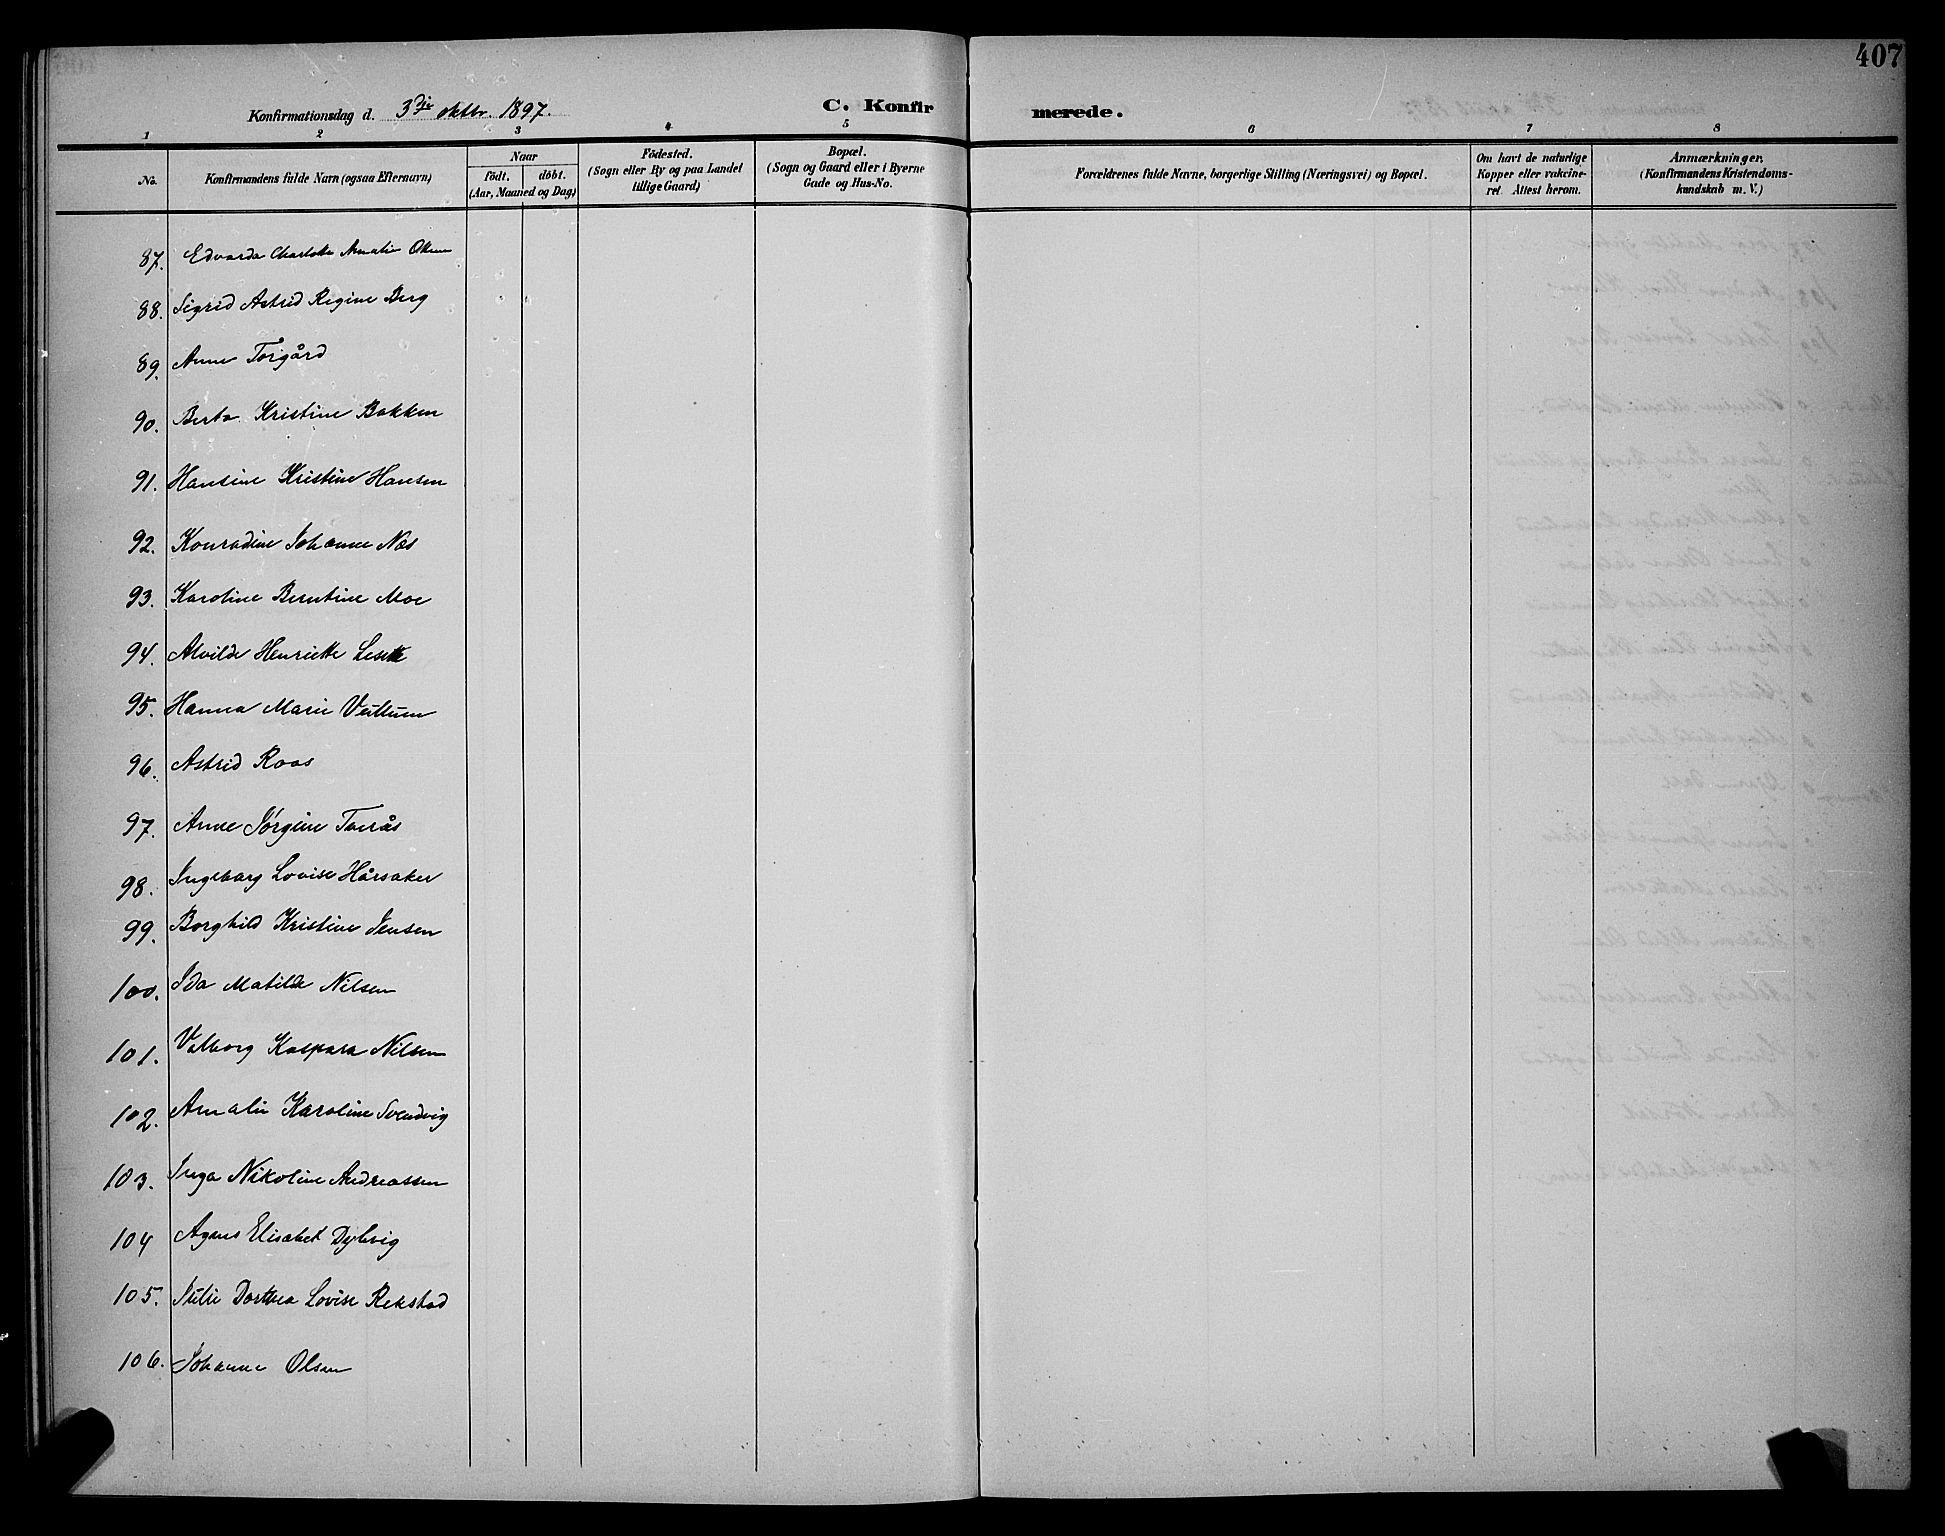 407
Konfirmationsdag d. 3die oktbr. 1897.
C. Konfir merede.
1 2 3 4 5 6 7 8
No.
Konfirmandens fulde Navn (ogsaa Efternavn)
Naar
født. døbt.
(Aar, Maaned og Dag)
Fødested.
(Sogn eller By og paa Landet
tillige Gaard)
Bopæl.
(Sogn og Gaard eller i Byerne
Gade og Hus-No.
Forældrenes fulde Navne, borgerlige Stilling (Næringsvei) og Bopæl.
Om havt de naturlige
Kopper eller vakcine-
ret. Attest herom.
Anmærkninger.
(Konfirmandens Kristendoms-
kundskab m. V.)
87. Edvarda Charlotte Amalie Olsen
88. Sigrid Astrid Regine Berg
89. Anne Torgård
90. Berta Kristine Bakken
91. Hansine Kristine Hansen
92. Konradine Johanne Næs
93. Karoline Berntine Moe
94. Alvilde Henriette Lesette
95. Hanna Marie Veitlum
96. Astrid Roos
97. Anne Jørgine
98. Ingeborg Lovise Hårsaker
99. Borghild Kristine Jensen
100. Ida Matilde Nilsen
101. Valborg Kaspara Nilsen
102. Amalie Karoline Svendvig
103. Inga Nikoline Andreassen
104 Agnes Elisabet Dybvig
105. Julie Dorthea Lovise Rekstad
106. Johanne Olsen